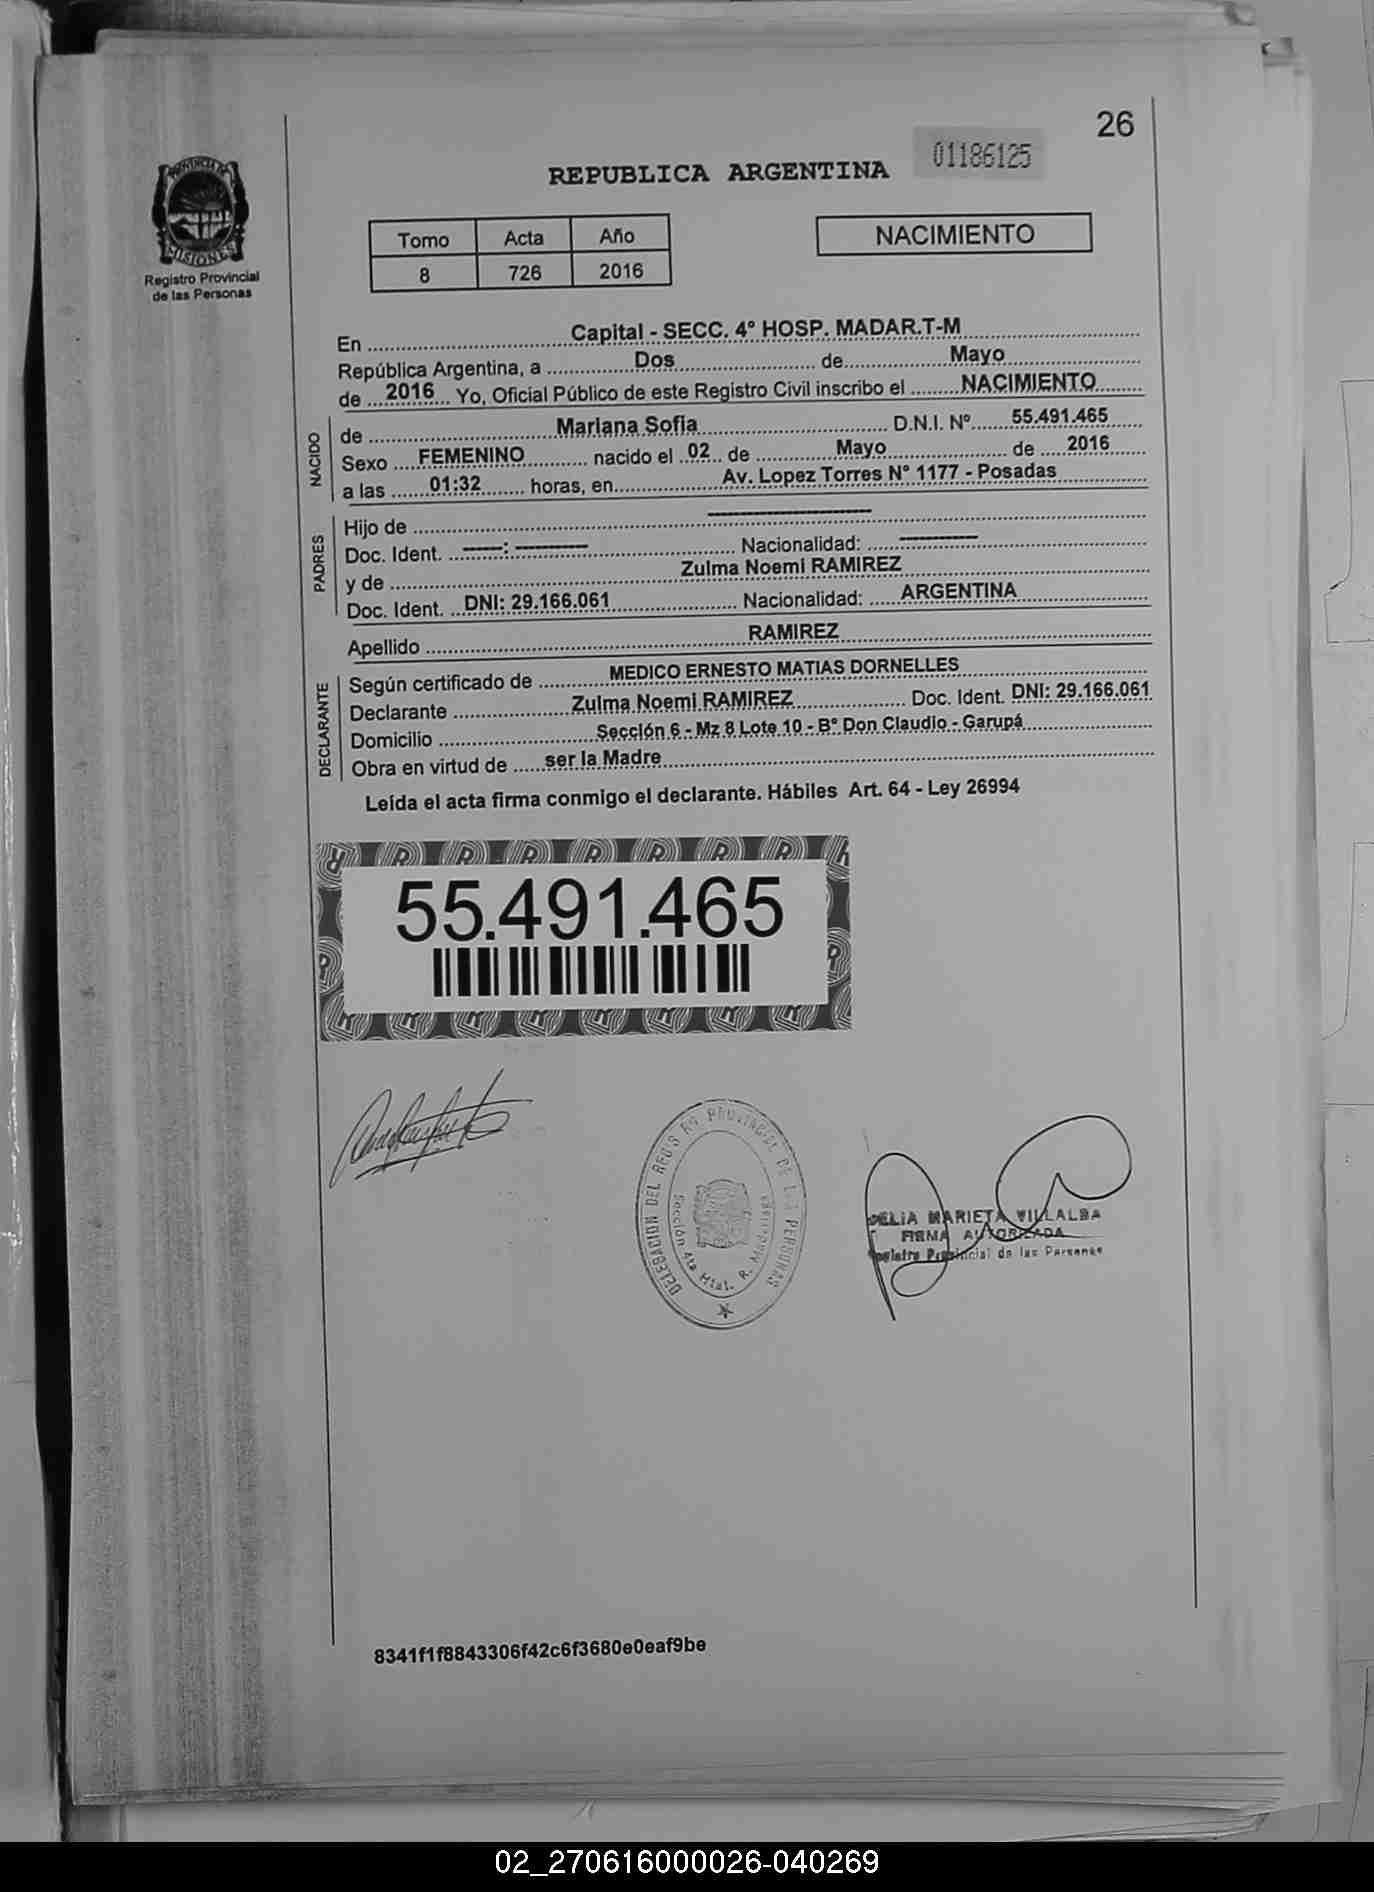 26
01186125
REPUBLICA ARGENTINA
PROVINCIA DE
MISIONES
Registro Provincial
de las Personas
Tomo Acta Año
8 726 2016
NACIMIENTO
En Capital - SECC. 4° HOSP. MADAR.T-M
República Argentina, a Dos de Mayo
de 2016 Yo, Oficial Público de este Registro Civil inscribo el NACIMIENTO
NACIDO
de Mariana Sofia D.N.I. Nº 55.491.465
Sexo FEMENINO nacido el 02 de Mayo de 2016
a las 01:32 horas, en Av. Lopez Torres N° 1177 - Posadas
PADRES
Hijo de --------------------
Doc. Ident. -----: --------- Nacionalidad: ----------
y de Zulma Noemi RAMIREZ
Doc. Ident. DNI: 29.166.061 Nacionalidad: ARGENTINA
Apellido RAMIREZ
DECLARANTE
Según certificado de MEDICO ERNESTO MATIAS DORNELLES
Declarante Zulma Noemi RAMIREZ Doc. Ident. DNI: 29.166.061
Domicilio Sección 6 - Mz 8 Lote 10 - B° Don Claudio - Garupá
Obra en virtud de ser la Madre
Leída el acta firma conmigo el declarante. Hábiles Art. 64 - Ley 26994
55.491.465
DELEGACION DEL REGIS RO PROVINCIAL DE LAS PERSONAS
Sección 4ta Htal. R. Madariaga
DELIA MARIETA VILLALBA
FIRMA AUTORIZADA
Registro Provincial de las Personas
8341f1f8843306f42c6f3680e0eaf9be
02_270616000026-040269